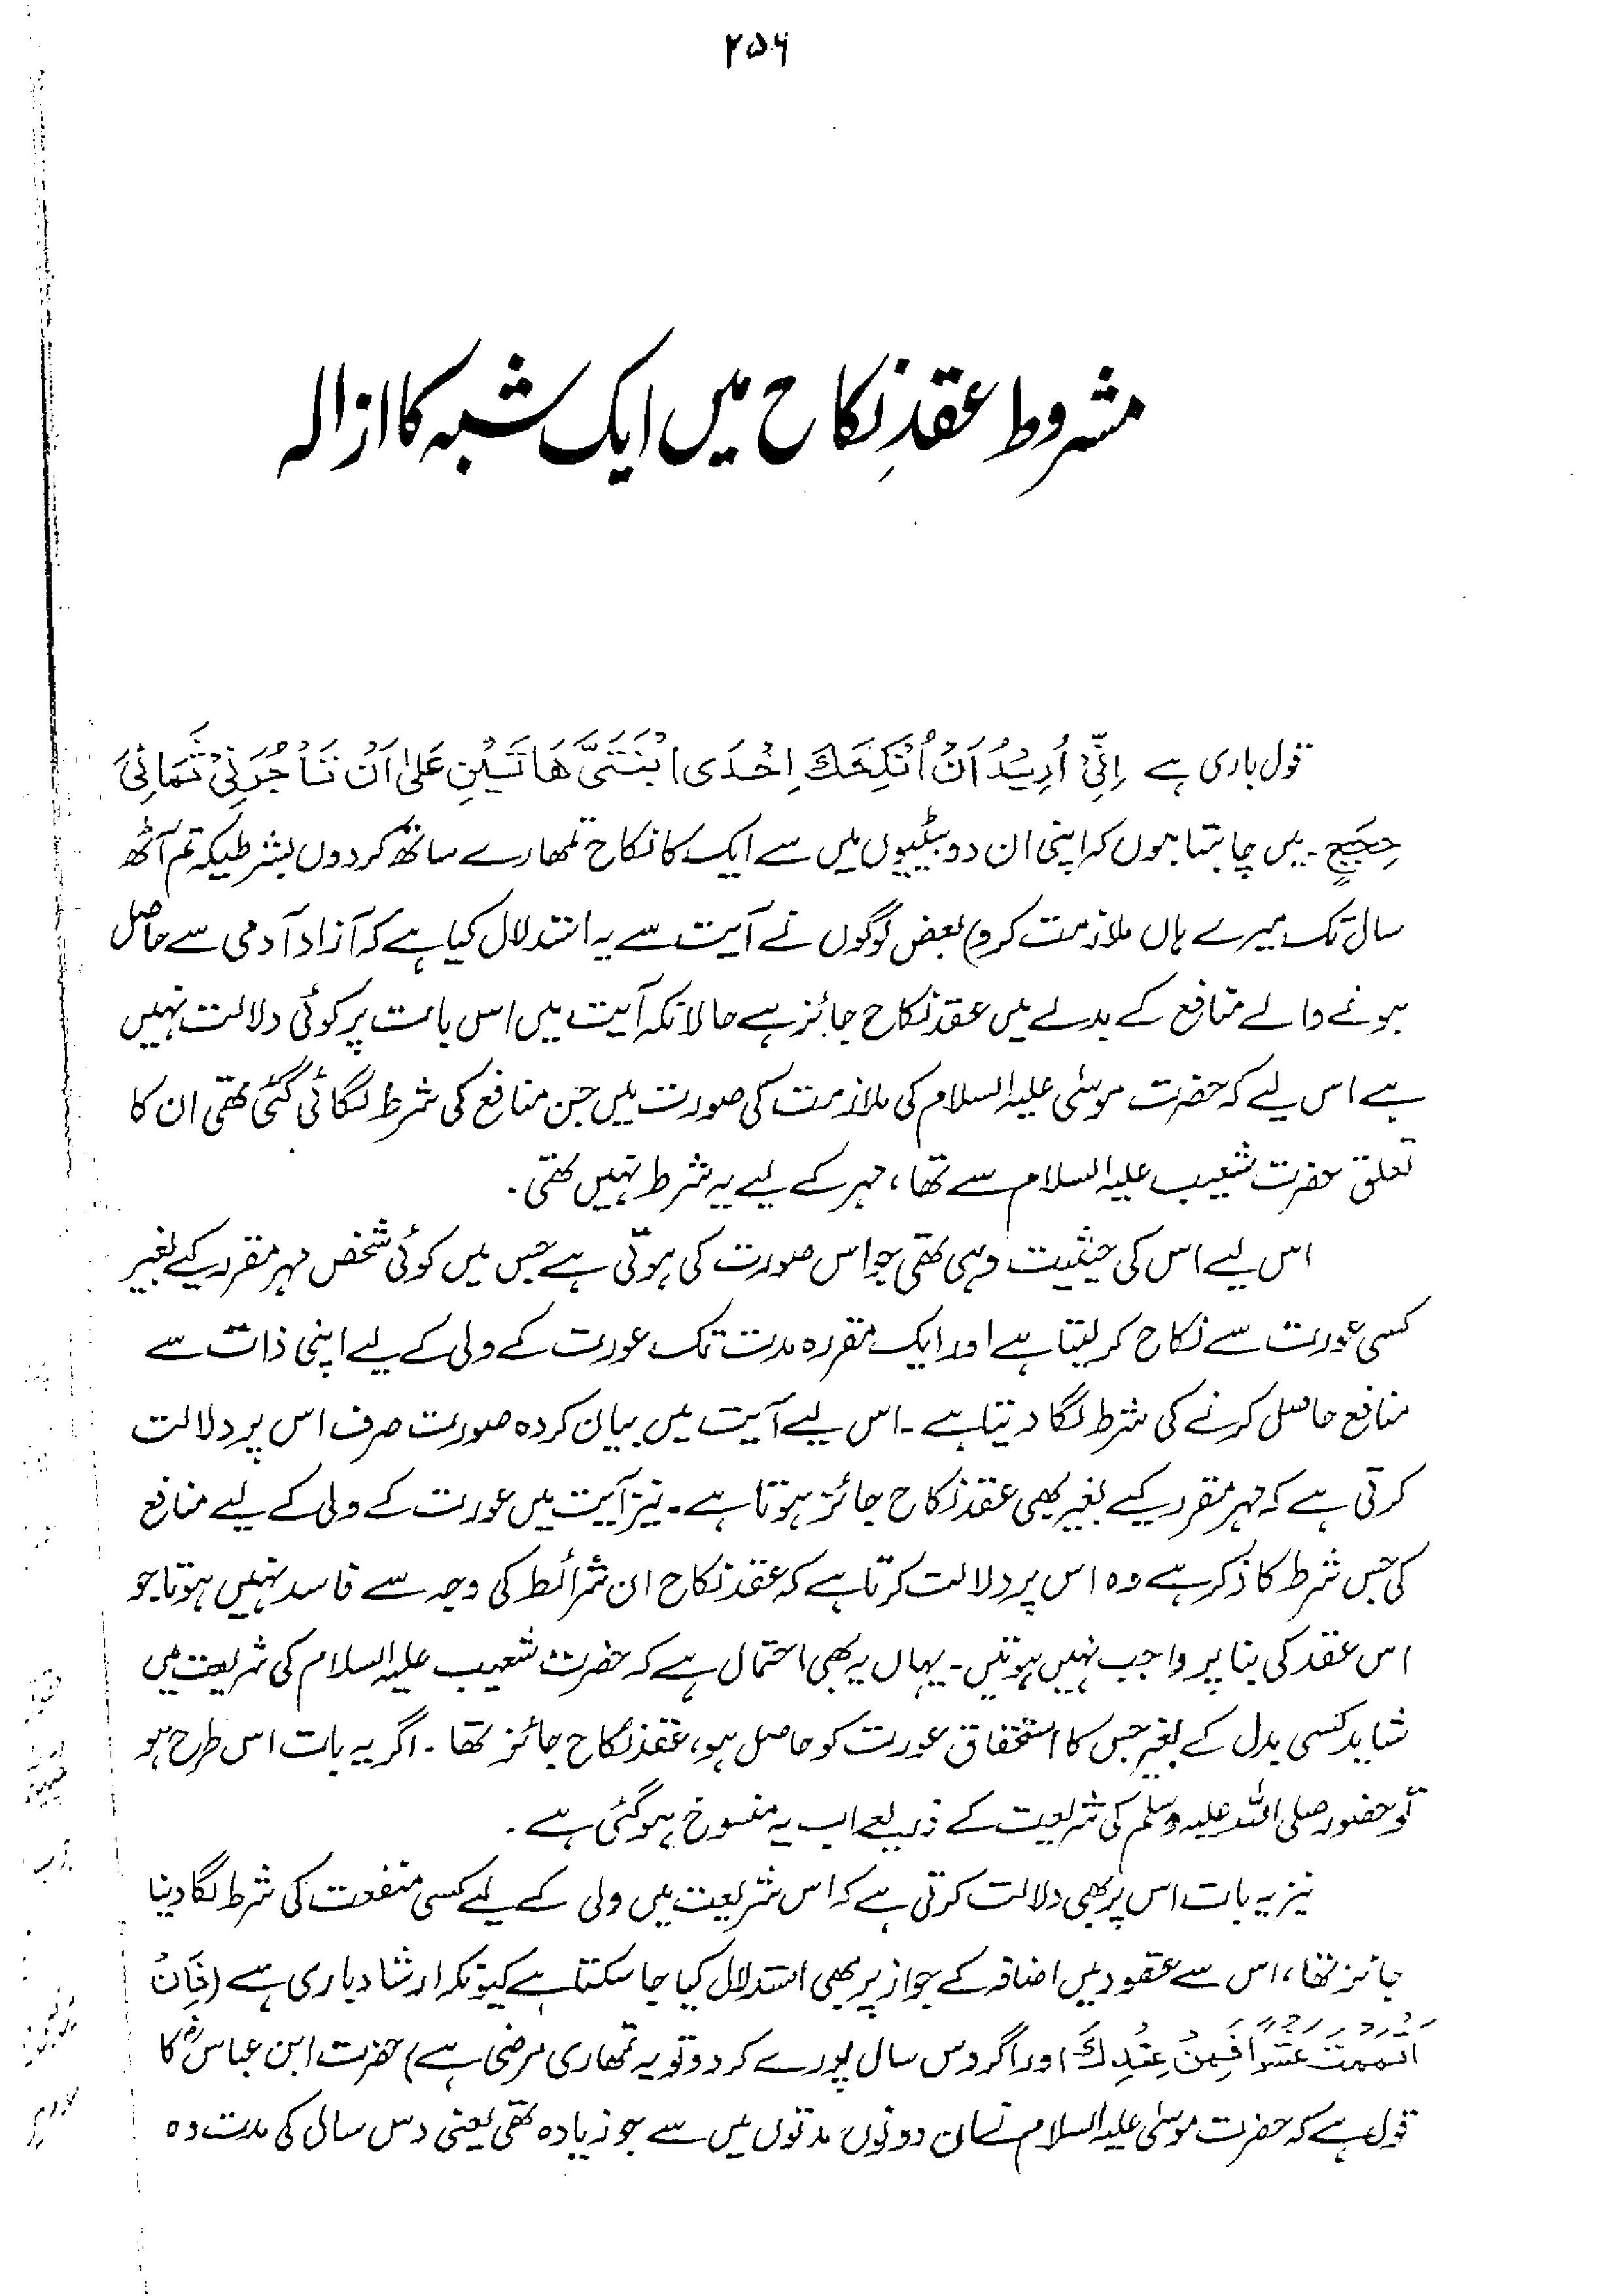 ۲۵۶
مشروط عقدِ نکاح میں ایک شبہ کا ازالہ
قول باری ہے اِنِّیْ اُرِیْدُ اَنْ اُنْکِحَكَ اِحْدَی ابْنَتَیَّ هَاتَیْنِ عَلیٰ اَنْ تَأْجُرَنِیْ ثَمَانِیَ
حِجَجٍ۔ میں چاہتا ہوں کہ اپنی ان دو بیٹیوں میں سے ایک کا نکاح تمہارے ساتھ کر دوں بشرطیکہ تم آٹھ
سال تک میرے ہاں ملازمت کرو) بعض لوگوں نے آیت سے یہ استدلال کیا ہے کہ آزاد آدمی سے حاصل
ہونے والے منافع کے بدلے میں عقد نکاح جائز ہے حالانکہ آیت میں اس بات پر کوئی دلالت نہیں
ہے اس لیے کہ حضرت موسیٰ علیہ السلام کی ملازمت کی صورت میں جن منافع کی شرط لگائی گئی تھی ان کا
تعلق حضرت شعیب علیہ السلام سے تھا، مہر کے لیے یہ شرط نہیں تھی۔
اس لیے اس کی حیثیت وہی تھی جو اس صورت کی ہوتی ہے جس میں کوئی شخص مہر مقرر کیے بغیر
کسی عورت سے نکاح کر لیتا ہے اور ایک مقررہ مدت تک عورت کے ولی کے لیے اپنی ذات سے
منافع حاصل کرنے کی شرط لگا دیتا ہے۔ اس لیے آیت میں بیان کردہ صورت صرف اس پر دلالت
کرتی ہے کہ مہر مقرر کیے بغیر بھی عقد نکاح جائز ہوتا ہے۔ نیز آیت میں عورت کے ولی کے لیے منافع
کی جس شرط کا ذکر ہے وہ اس پر دلالت کرتا ہے کہ عقد نکاح ان شرائط کی وجہ سے فاسد نہیں ہوتا جو
اس عقد کی بنا پر واجب نہیں ہوتیں۔ یہاں یہ بھی احتمال ہے کہ حضرت شعیب علیہ السلام کی شریعت میں
شاید کسی بدل کے بغیر جس کا استحقاق عورت کو حاصل ہو، عقد نکاح جائز تھا۔ اگر یہ بات اس طرح ہو
تو حضور صلی اللہ علیہ وسلم کی شریعت کے ذریعے اب یہ منسوخ ہو گئی ہے۔
نیز یہ بات اس پر بھی دلالت کرتی ہے کہ اس شریعت میں ولی کے لیے کسی منفعت کی شرط لگا دینا
جائز تھا، اس سے عقود میں اضافہ کے جواز پر بھی استدلال کیا جا سکتا ہے کیونکہ ارشاد باری ہے (فَاِنْ
اَتْمَمْتَ عَشْرًا فَمِنْ عِنْدِكَ اور اگر دس سال پورے کر دو تو یہ تمہاری مرضی ہے) حضرت ابن عباسؓ کا
قول ہے کہ حضرت موسیٰ علیہ السلام نے ان دونوں مدتوں میں سے جو زیادہ تھی یعنی دس سال کی مدت وہ